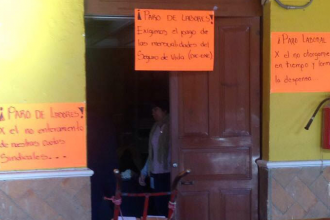 ¡PARO DE LABORES!
Exigimos el pago de
las mensualidades del
Seguro de Vida
¡PARO LABORAL
X el no otorgarnos
en tiempo y forma
la despensa.
¡PARO DE LABORES!
X el no enteramiento
de nuestras cuotas
Sindicales...